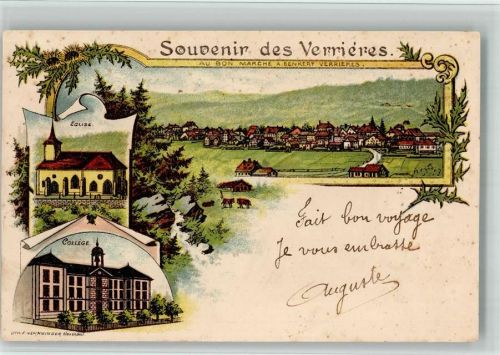 Souvenir des Verriéres.
AU BON MARCHE A. BENKERT VERRIERES.
EGLISE.
COLLÈGE
Fait bon voyage
Je vous embrasse
Auguste